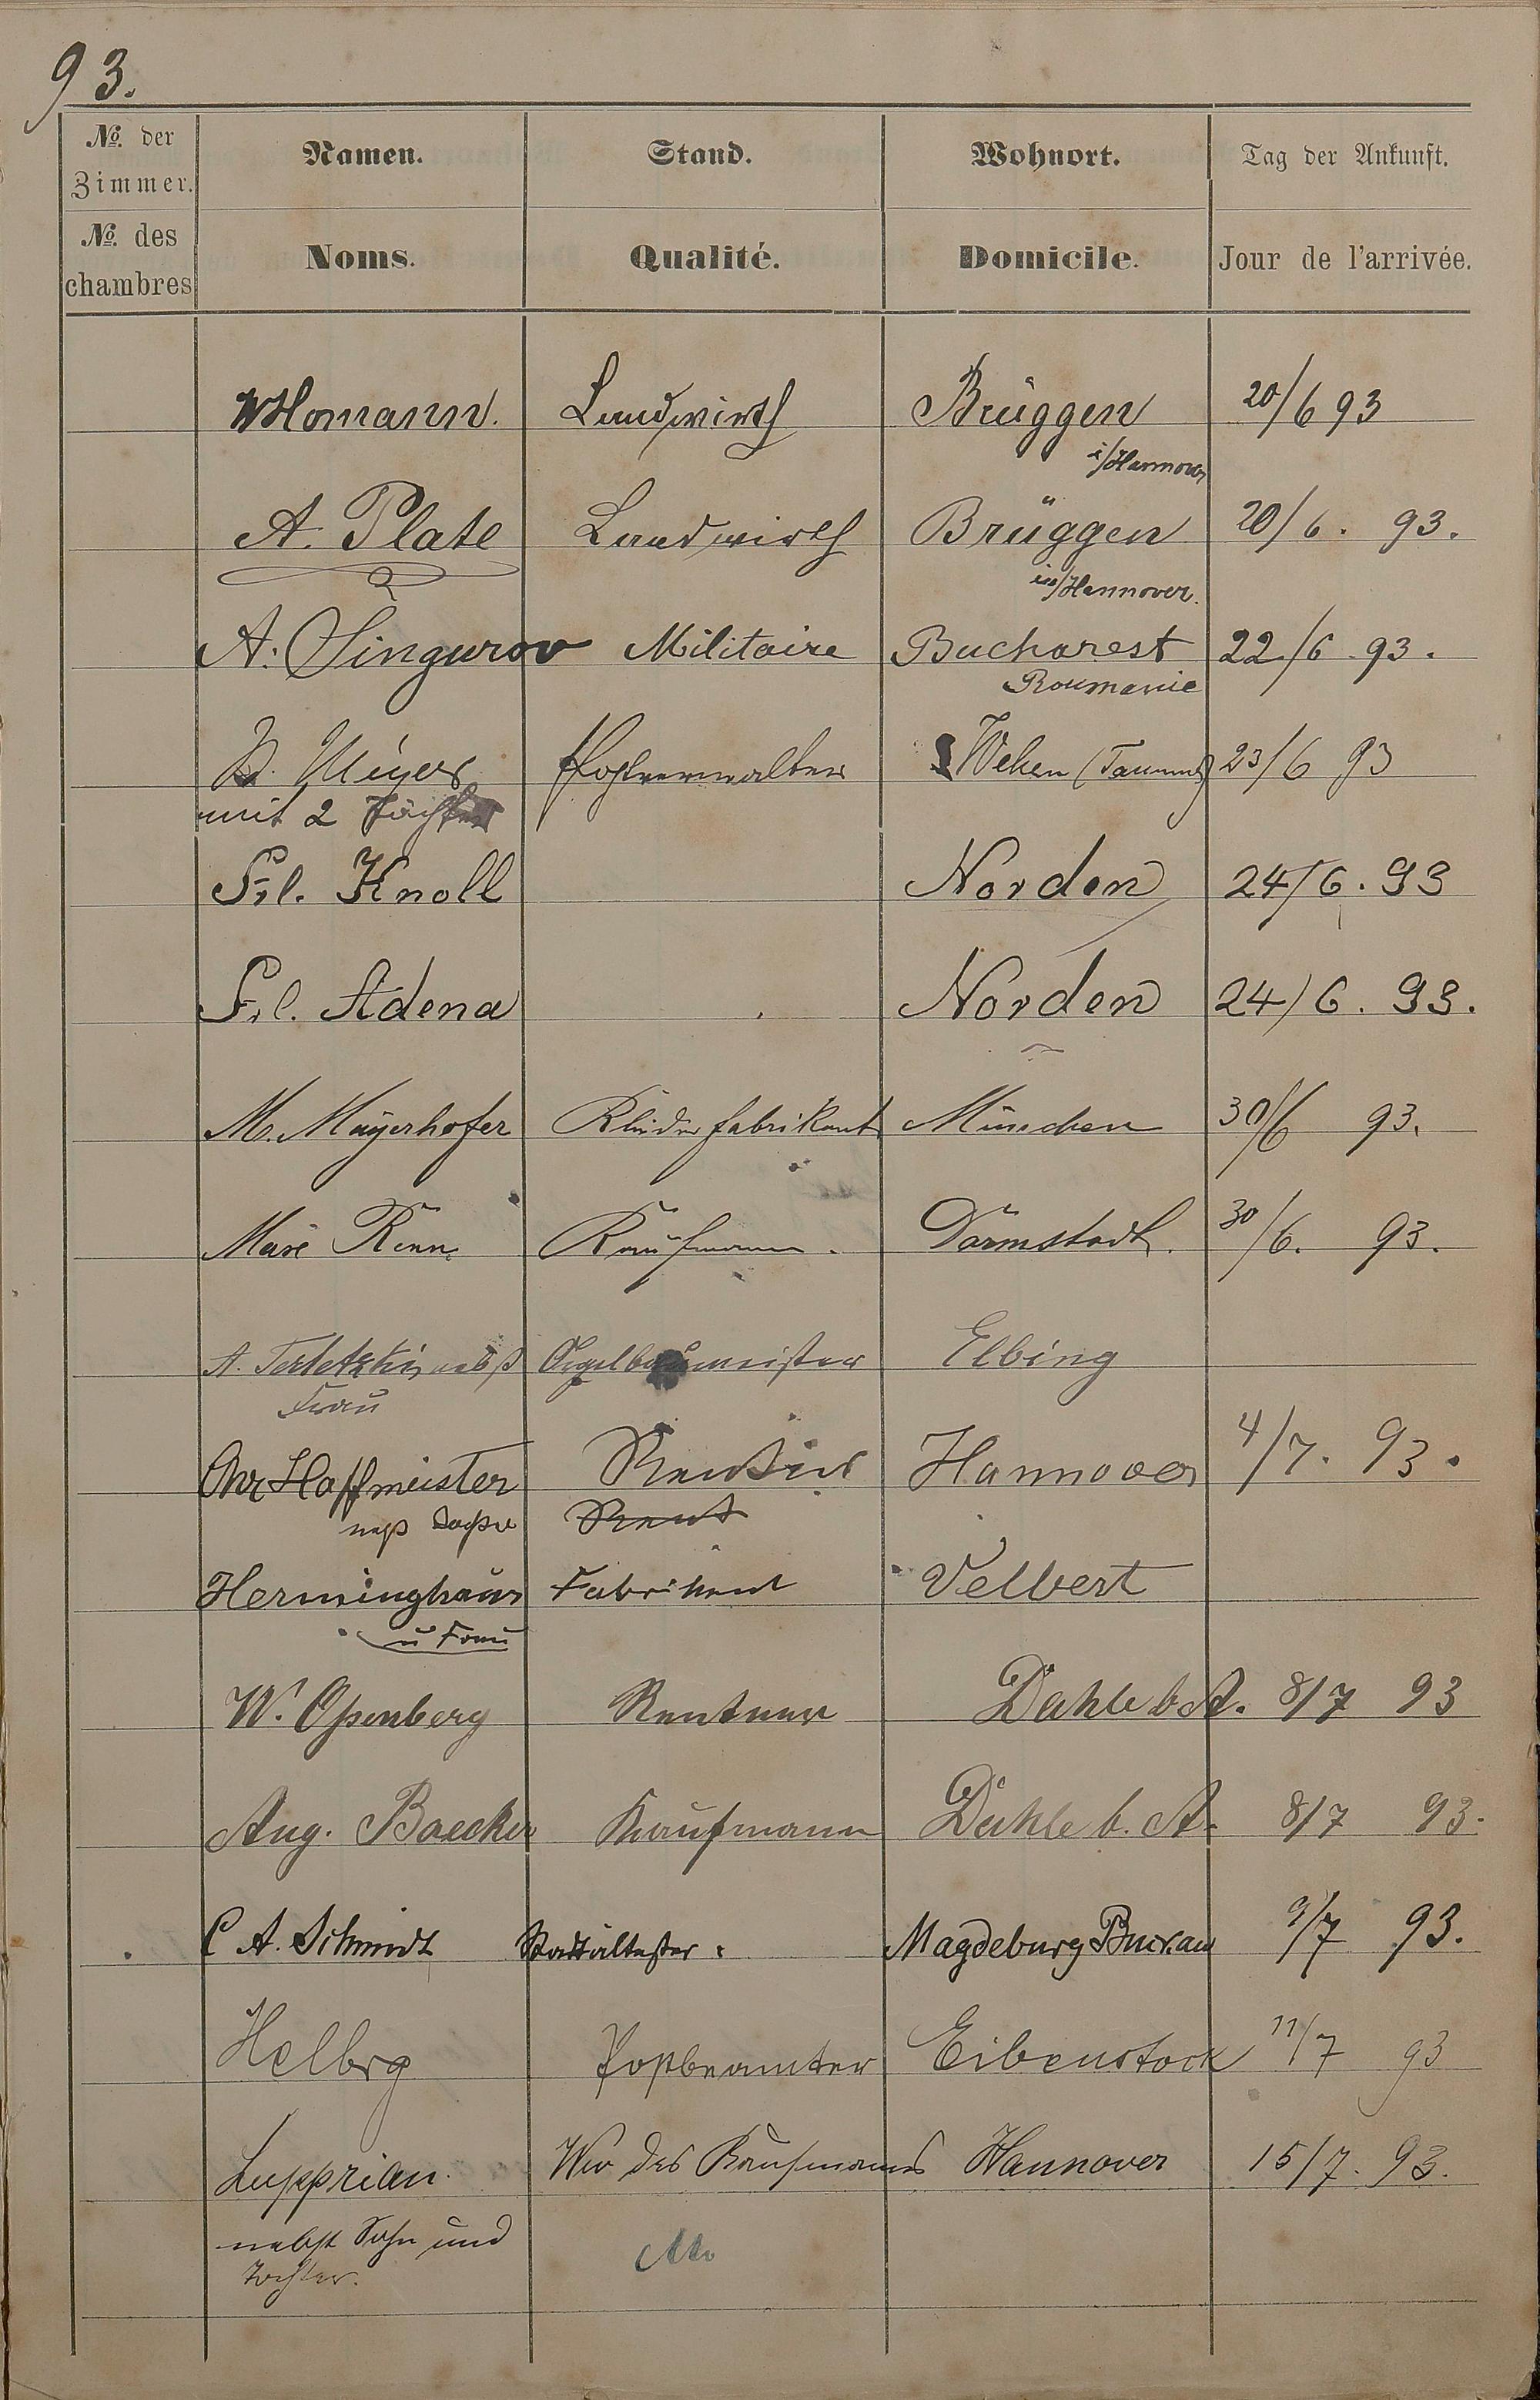 93.
No. der Zimmer. Namen. Stand. Wohnort. Tag der Ankunft.
No. des chambres Noms. Qualité. Domicile. Jour de l'arrivée.
W Homann. Landwirth Brüggen 20/6 93
i/Hannover
A. Plate Landwirth Brüggen 20/6. 93.
in/Hannover.
A. Singurov Militaire Bucharest 22/6 93.
Roumanie
Meyer Postverwalter Wehen (Taunus) 23/6 93
mit 2 Töchter
Frl. Knoll Norden 24/6. 93
Frl. Adena Norden 24/6. 93.
M. Mayerhofer Kleiderfabrikant München 30/6 93.
Kaufmann. Darmstadt. 30/6. 93.
A. Terletzki nebst Orgelbaumeister Elbing
Frau
Chr Hoffmeister Rentier Hannover 4/7. 93.
nebst Tochter Rent
Herminghaus Fabrikant Velbert
u Frau
W. Ossenberg Rentner Dahle b. A. 8/7 93
Aug. Baecker Kaufmann Dahle b. A. 8/7 93.
C A. Schmidt Stadtältester. Magdeburg Buckau 9/7 93.
Helbig Postbeamter Eibenstock 11/7 93
Lupprian. Ww des Kaufmanns Hannover 15/7. 93.
nebst Sohn und
Tochter.